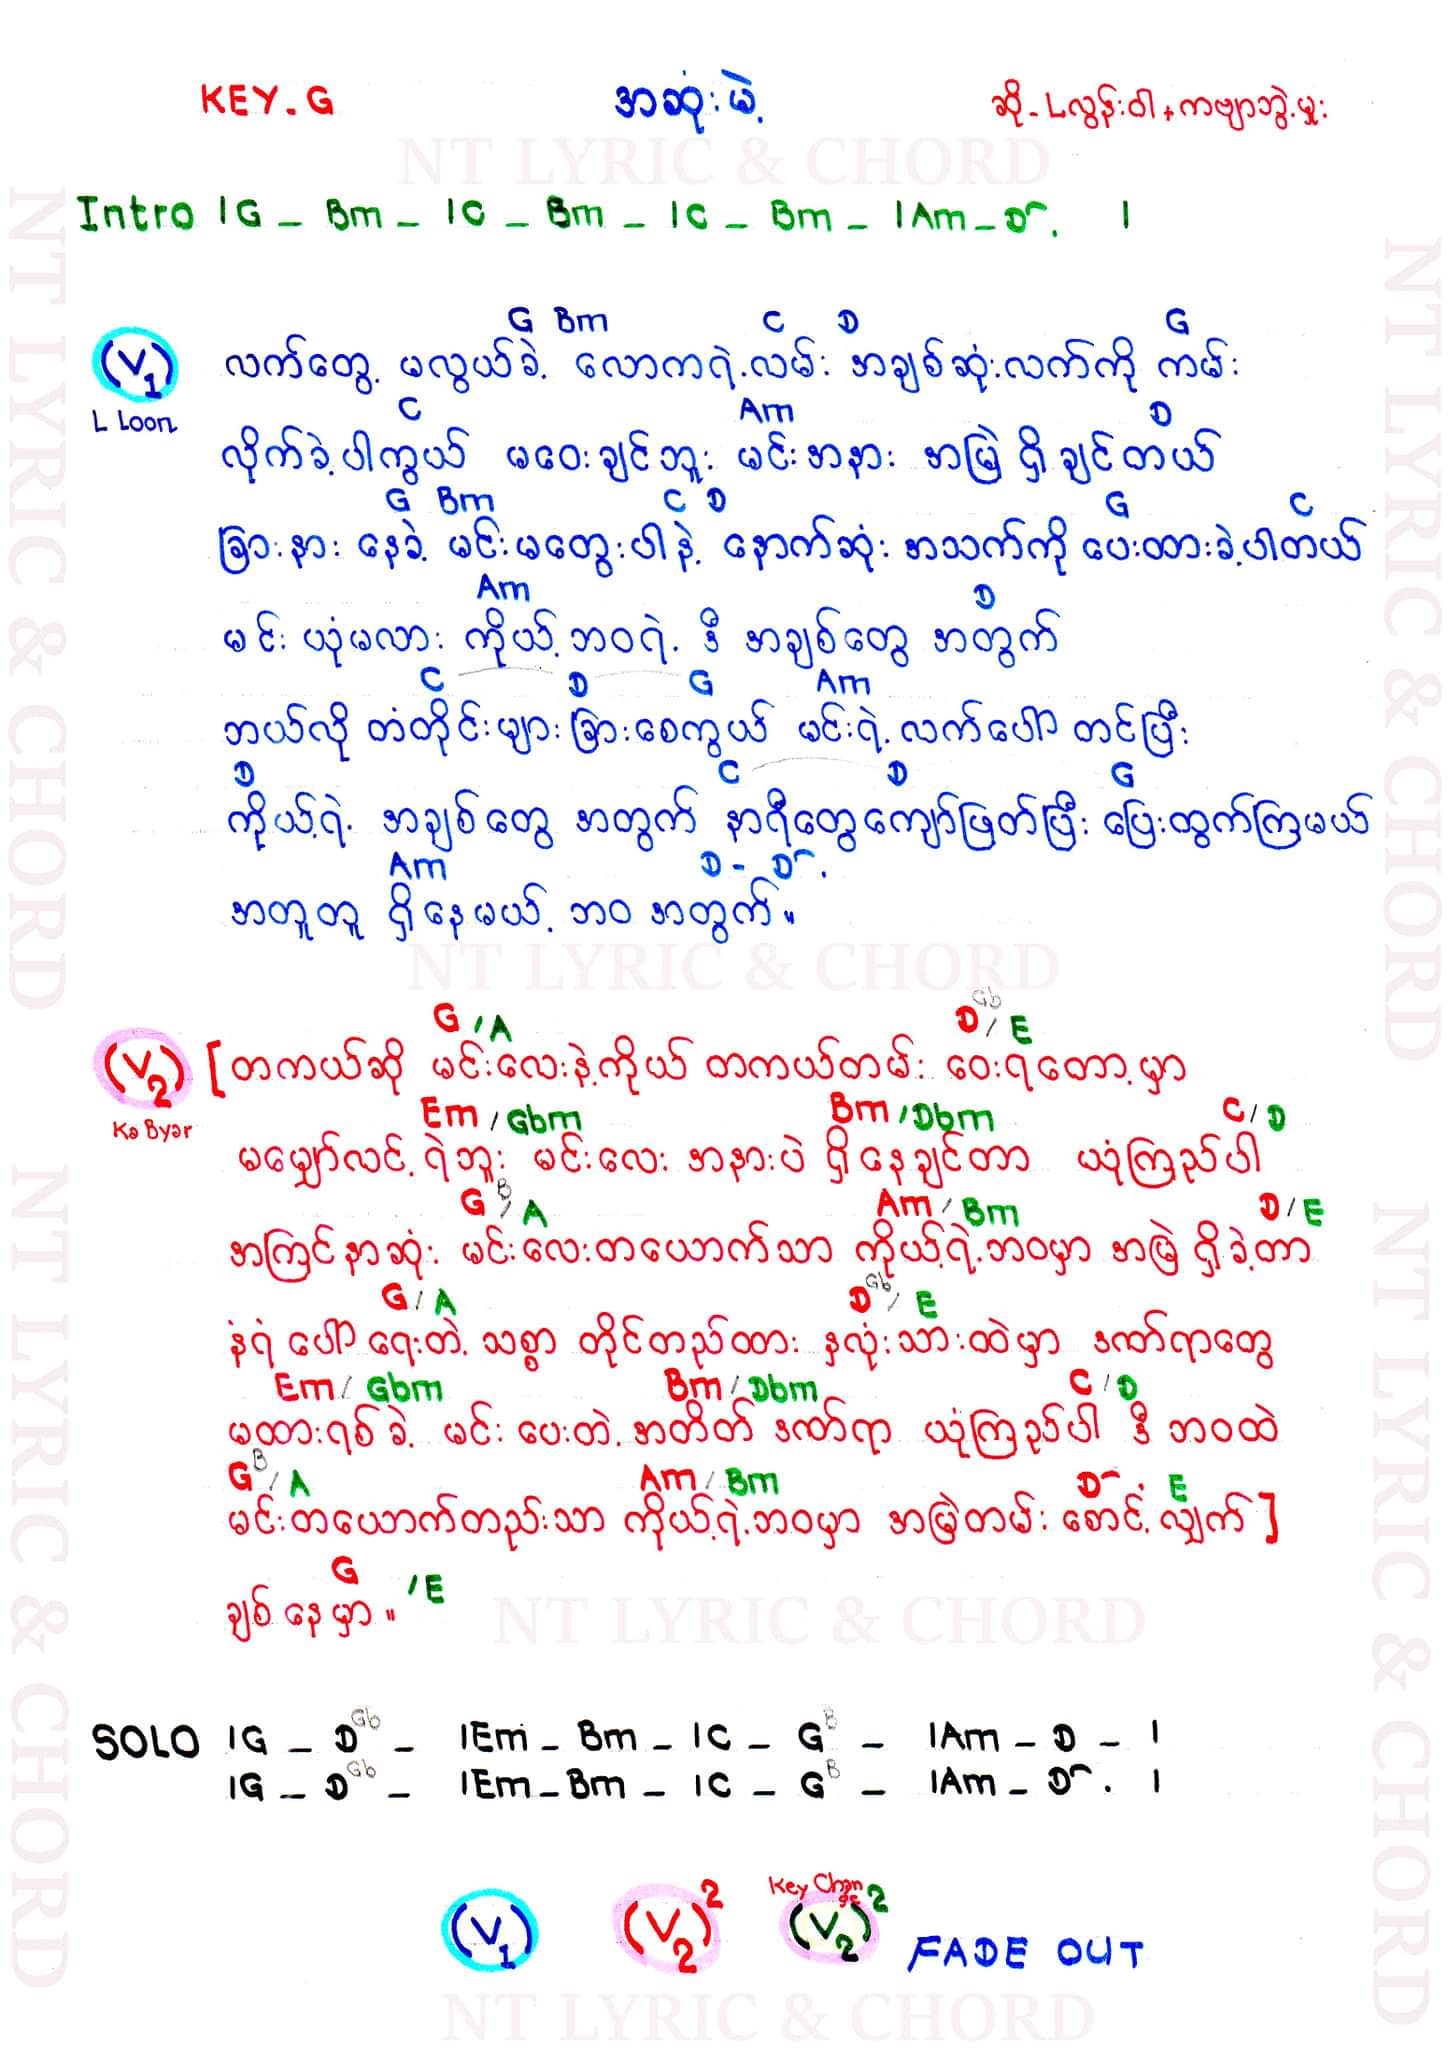 KEY. G အဆုံးမဲ့ ဆို - Lလွန်းဝါ + ကဗျာဘွဲ့မှူး
NT LYRIC & CHORD
Intro | G - Bm - | C - Bm - | C - Bm - | Am - D⌢. |
G Bm C D G
(V1) လက်တွေ့ မလွယ်ခဲ့ လောကရဲ့လမ်း အချစ်ဆုံးလက်ကို ကမ်း
L Loon
C Am D
လိုက်ခဲ့ပါကွယ် မဝေးချင်ဘူး မင်းအနား အမြဲ ရှိချင်တယ်
G Bm C D G C
ခြားနား နေခဲ့ မင်းမတွေးပါနဲ့ နောက်ဆုံး အသက်ကို ပေးထားခဲ့ပါတယ်
Am D
မင်း ယုံမလား ကိုယ့်ဘဝရဲ့ ဒီ အချစ်တွေ အတွက်
C D G Am
ဘယ်လို တံတိုင်းများ ခြားစေကွယ် မင်းရဲ့လက်ပေါ် တင်ပြီး
D C D G
ကိုယ့်ရဲ့ အချစ်တွေ အတွက် နာရီတွေကျော်ဖြတ်ပြီး ပြေးထွက်ကြမယ်
Am D - D⌢.
အတူတူ ရှိနေမယ့် ဘဝ အတွက်။
NT LYRIC & CHORD
G / A D Gb / E
(V2) [ တကယ်ဆို မင်းလေးနဲ့ကိုယ် တကယ်တမ်း ဝေးရတော့မှာ
Ka Byar
Em / Gbm Bm / Dbm C / D
မမျှော်လင့်ရဲဘူး မင်းလေး အနားပဲ ရှိနေချင်တာ ယုံကြည်ပါ
G B / A Am / Bm D / E
အကြင်နာဆုံး မင်းလေးတယောက်သာ ကိုယ့်ရဲ့ဘဝမှာ အမြဲ ရှိခဲ့တာ
G / A D Gb / E
နံရံ ပေါ် ရေးတဲ့ သစ္စာ တိုင်တည်ထား နှလုံးသားထဲမှာ ဒဏ်ရာတွေ
Em / Gbm Bm / Dbm C / D
မထားရစ်ခဲ့ မင်း ပေးတဲ့ အတိတ် ဒဏ်ရာ ယုံကြည်ပါ ဒီ ဘဝထဲ
G B / A Am / Bm D⌢. E
မင်းတယောက်တည်းသာ ကိုယ့်ရဲ့ဘဝမှာ အမြဲတမ်း စောင့်လျှက် ]
G / E
ချစ်နေမှာ။
NT LYRIC & CHORD
SOLO | G - D Gb - | Em - Bm - | C - G B - | Am - D - |
| G - D Gb - | Em - Bm - | C - G B - | Am - D⌢. |
Key Change
(V1) (V2)2 (V2)2 FADE OUT
NT LYRIC & CHORD
NT LYRIC & CHORD
NT LYRIC & CHORD
NT LYRIC & CHORD
NT LYRIC & CHORD